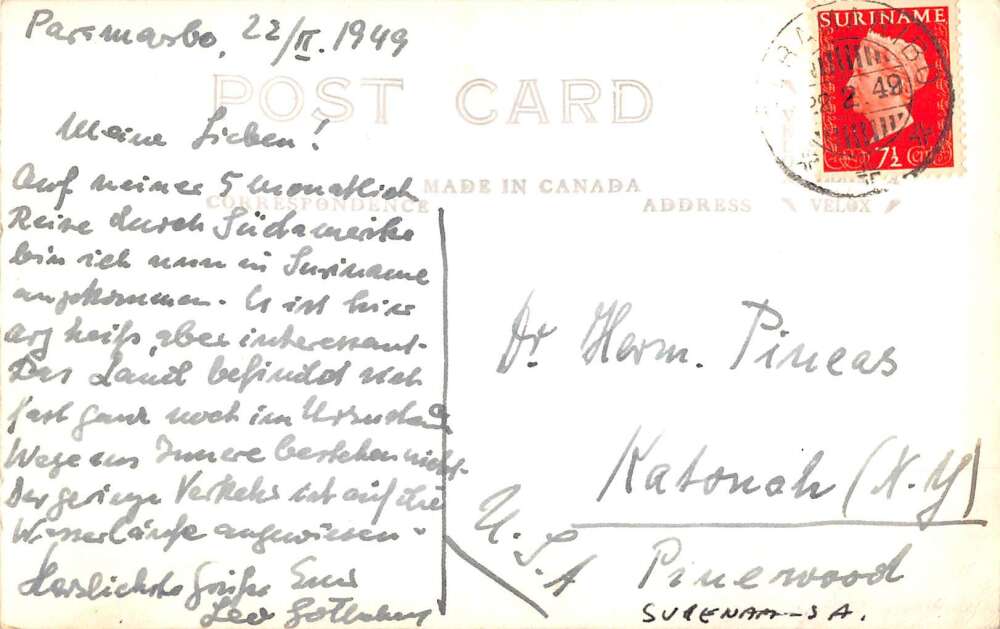 Parmaribo, 22/II. 1949
SURINAME
PARAMARIBO
2.49
7½
POST CARD
Meine Lieben!
Auf meiner 5 monatlich
MADE IN CANADA
CORRESPONDENCE
ADDRESS
VELOX
Reise durch Südamerika
bin ich nun in Suriname
angekommen. Es ist hier
arg heiß, aber interessant.
Das Land befindet sich
fast ganz noch im Urzustand
Wege ins Innere bestehen nicht.
Der geringe Verkehr ist auf die
Wasserläufe angewiesen.
Herzlichste Grüße Euer
Leo
Dr Herm. Pineas
Katonah (N.Y)
U.S.A
Pinewood
SURENAM-SA.